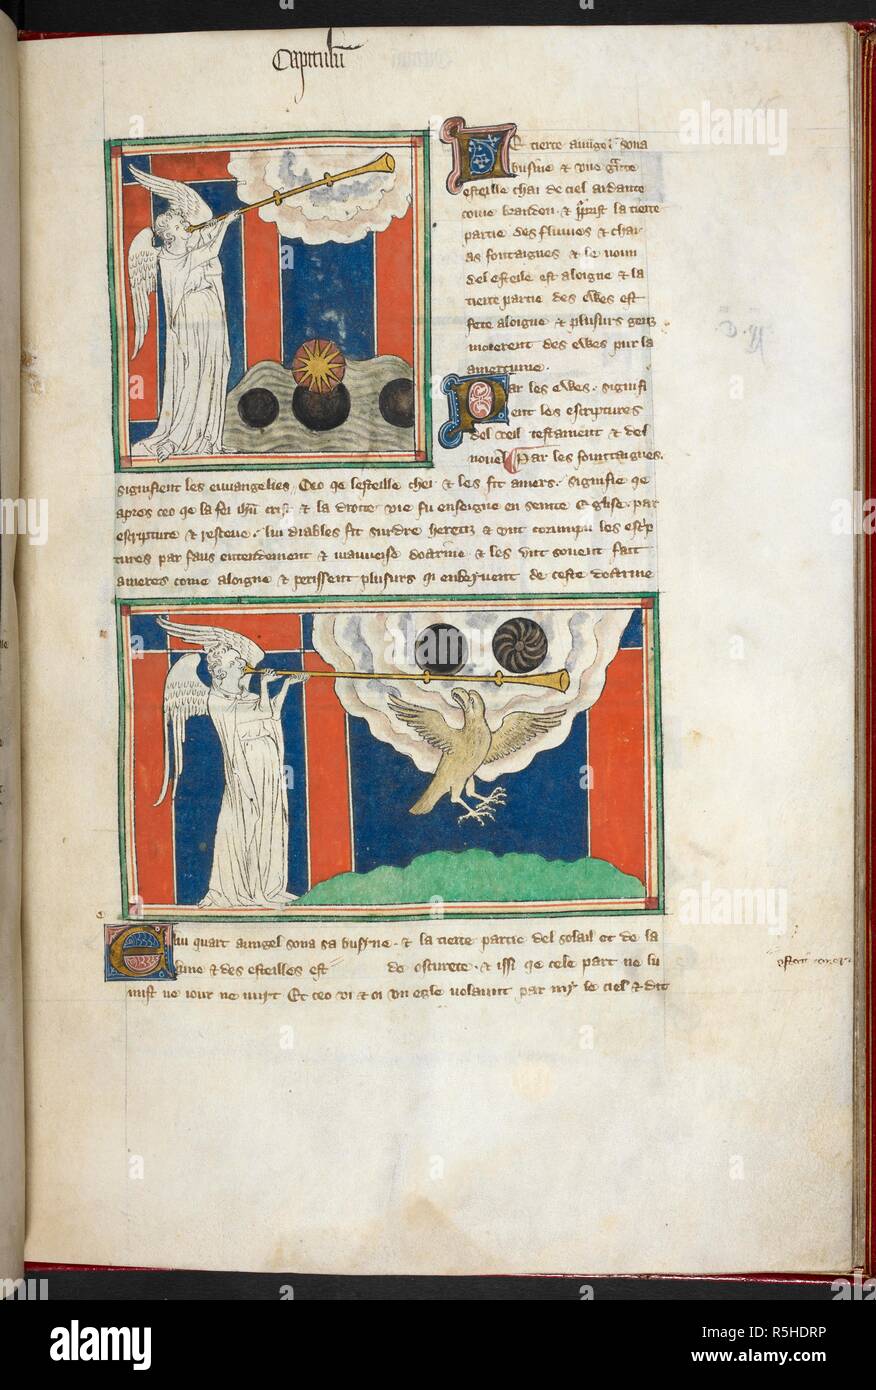 Capitulum
E tierce aungel sona
busine & une grãt
esteille chai de ciel ardante
come brandon & prist la tierce
partie des fluvies & chai
as fontaignes & le noun
del esteile est aloigne & la
tierce partie des ewes est
fete aloigne & plusurs genz
morerent des ewes pur la
amertume.
Par les ewes. signifi
ent les escriptures
del veil testament & del
novel Par les fountaignes.
signifient les ewangelies. Ceo qe lesteille chei & les fit amers. signifie qe
apres ceo qe la fei ihu crist & la droite vie fu enseigne en seinte Eglise. par
escripture & lui diables fit surdre heretiz & unt corumpu les escrip
tures par faus entendement & mauveise doctrine & les unt sovent fait
ameres come aloigne & perissent plusurs qi enbeyvent de ceste doctrine
Lui quart aungel sona sa busyne. & la tierce partie del solail et de la
lune & des esteilles est de oscurete. & issi qe cele part ne lu
mist ne iour ne nuyt Et ceo vi & oi un egle volaunt par my le ciel & dit
alamy
Image ID: R5HDRP
www.alamy.com